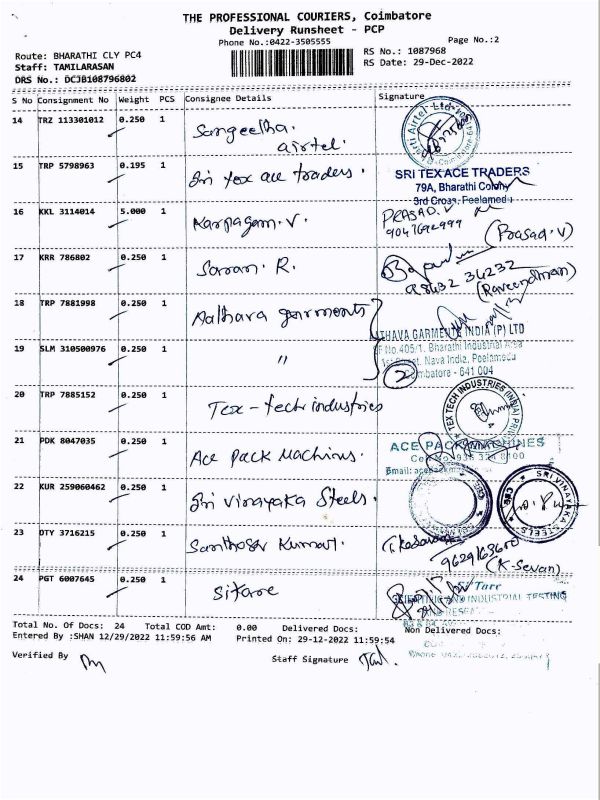 THE PROFESSIONAL COURIERS, Coimbatore
Delivery Runsheet - PCP
Phone No.:0422-3505555
Page No.:2
Route: BHARATHI CLY PC4
RS No.: 1087968
Staff: TAMILARASAN
RS Date: 29-Dec-2022
DRS No.: DCJB108796802
S No Consignment No Weight PCS Consignee Details Signature
14 TRZ 113301012 0.250 1 Sangeetha.
airtel.
15 TRP 5798963 0.195 1 Sri Tex ace traders.
SRI TEXACE TRADERS
79A, Bharathi Colony
3rd Cross, Peelamedu
16 KKL 3114014 5.000 1 Karpagam. V. PRASAD. V
(Prasad. V)
17 KRR 786802 0.250 1 Saravan. R.
98432 34232
(Raveendhran)
18 TRP 7881998 0.250 1 Aathava garments
THAVA GARMENTS INDIA (P) LTD
F No.405/1, Bharathi Industrial Area
1st Street, Nava India, Peelamedu
mbatore - 641 004
19 SLM 310500976 0.250 1 "
2
20 TRP 7885152 0.250 1 Tex-tech industries
TEX TECH INDUSTRIES (INDIA) PRIVATE
21 PDK 8047035 0.250 1 Ace pack Machines.
ACE PACK MACHINES
22 KUR 259060462 0.250 1 Sri Vinayaka Steels.
SRI VINAYAKA STEELS
CBE
23 DTY 3716215 0.250 1 Santhosh Kumar.
9629163600
(K-Sevan)
24 PGT 6007645 0.250 1 Sitarc
Si'Tarc
SCIENTIFIC AND INDUSTRIAL TESTING
AND RESEAR
Total No. Of Docs: 24 Total COD Amt: 0.00 Delivered Docs: Non Delivered Docs:
Entered By :SHAN 12/29/2022 11:59:56 AM Printed On: 29-12-2022 11:59:54
Verified By Staff Signature